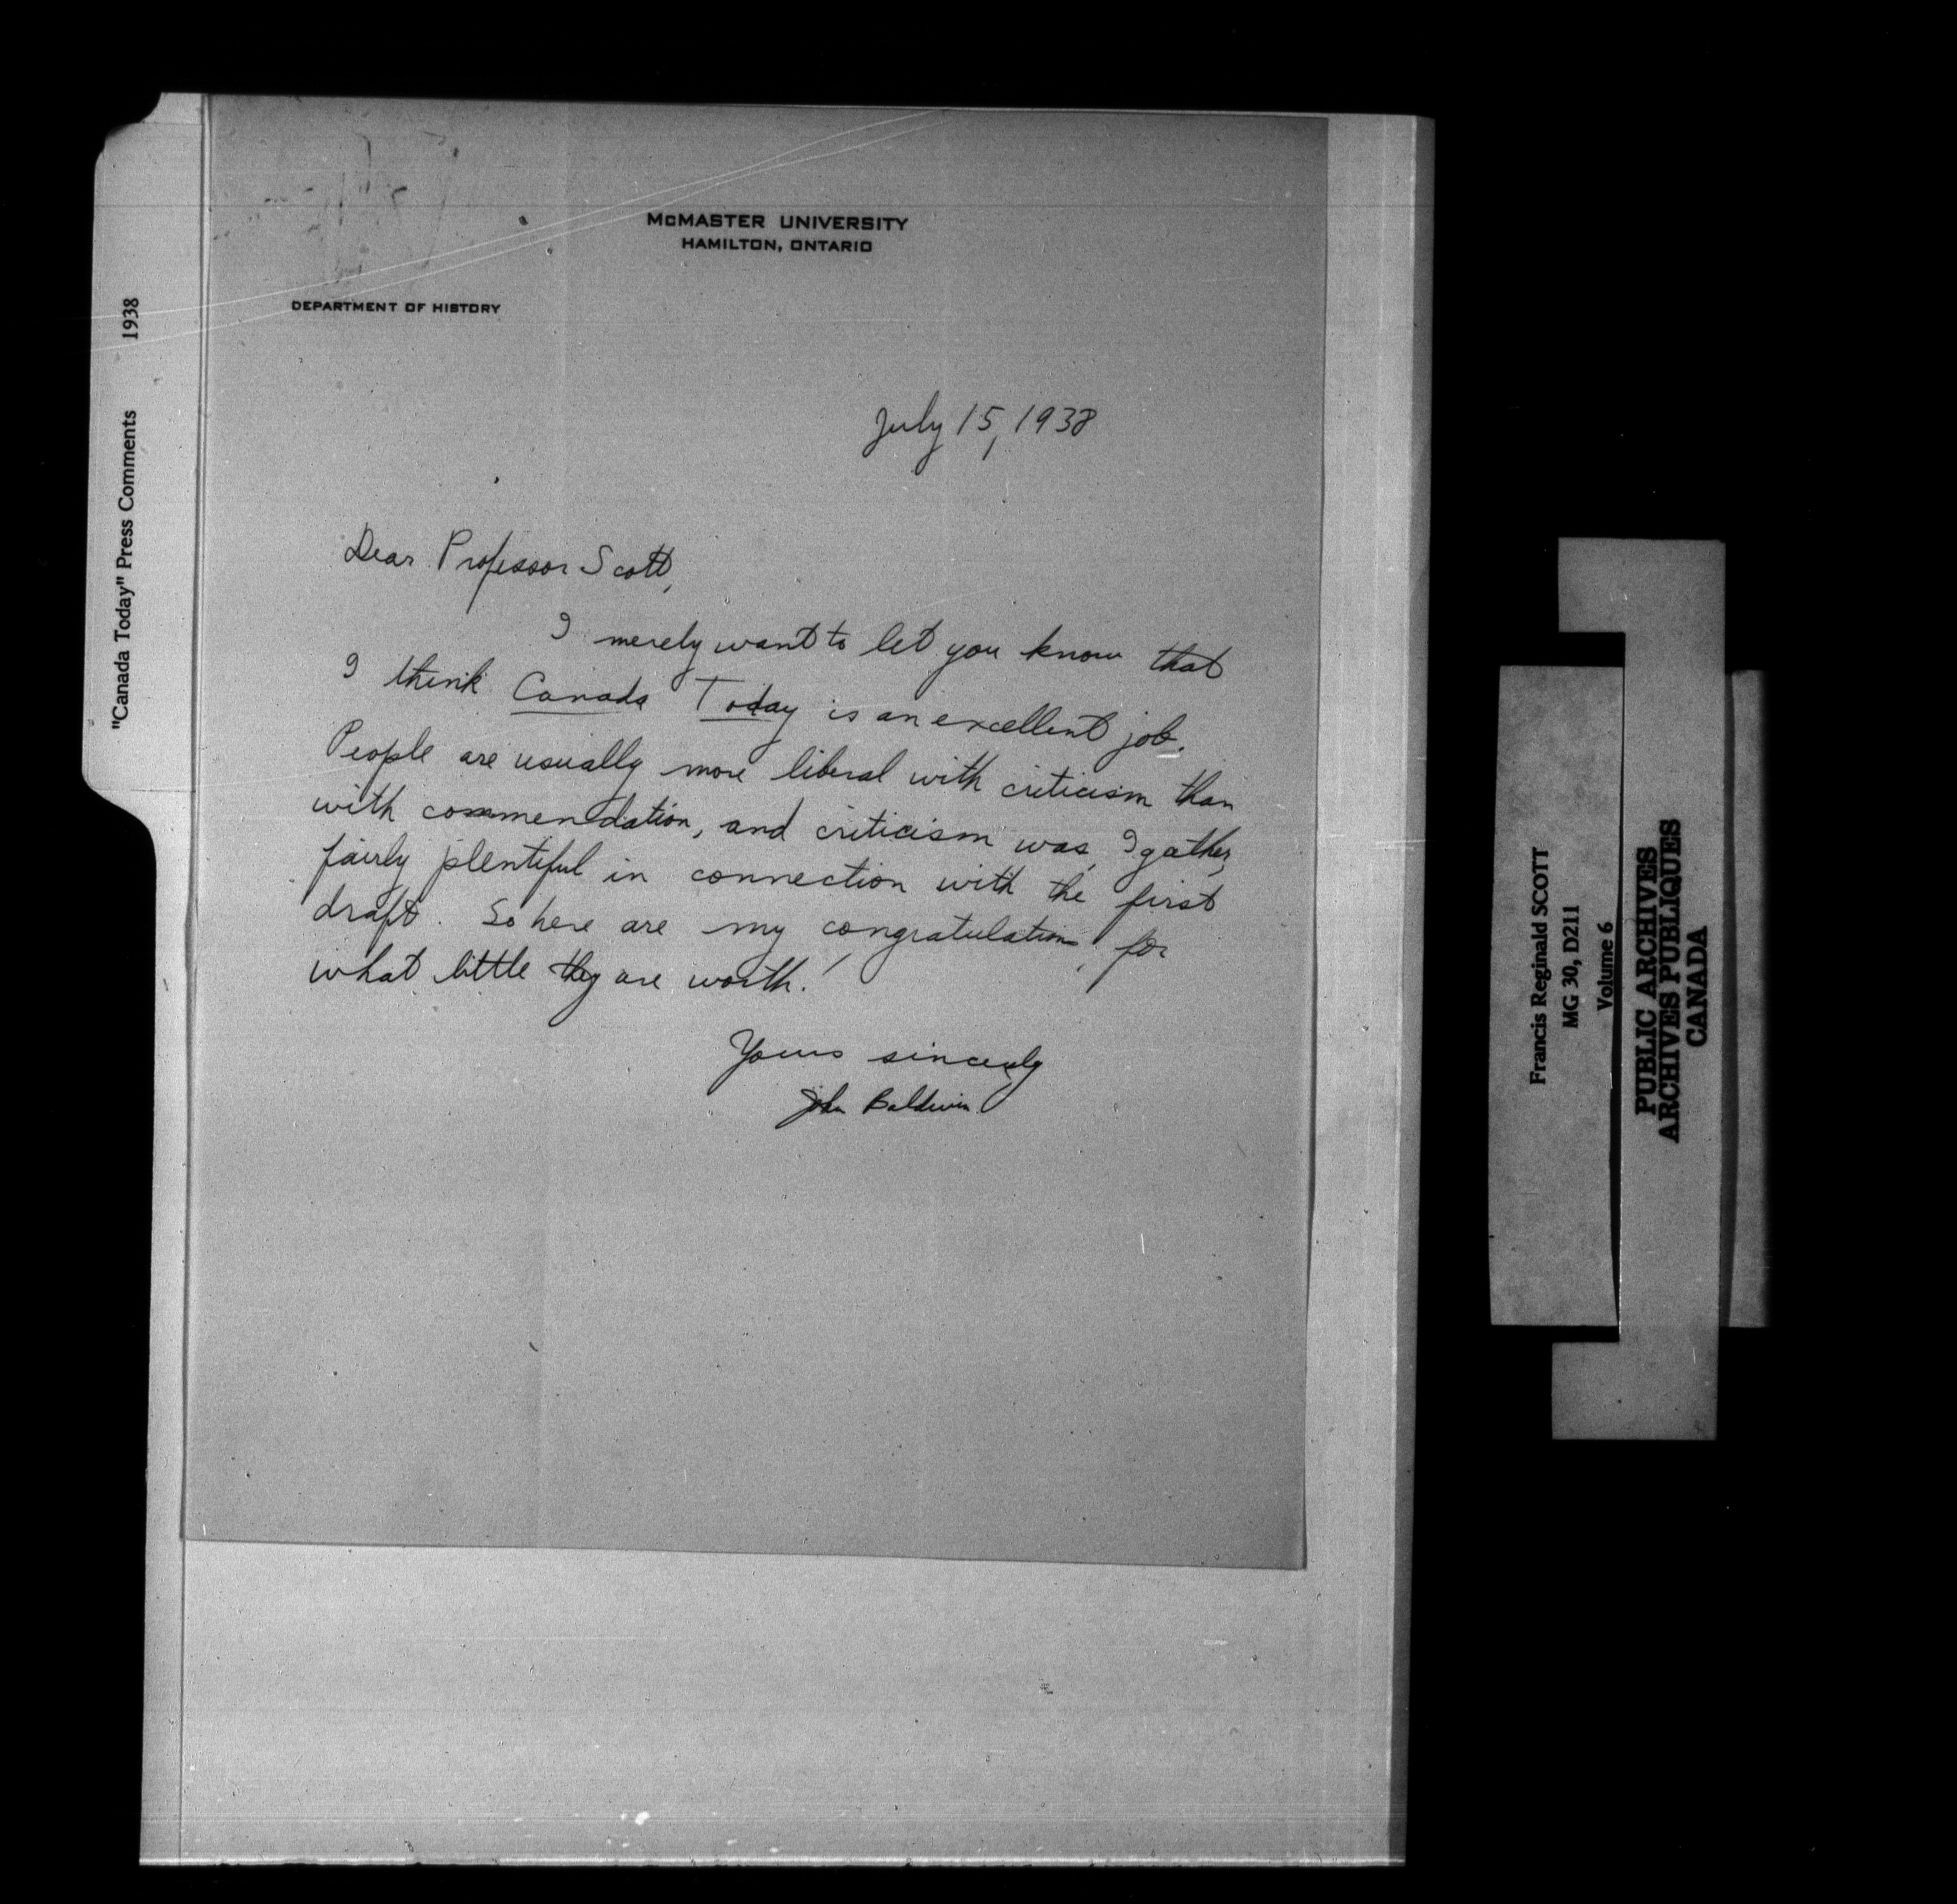 McMASTER UNIVERSITY
HAMILTON, ONTARIO
DEPARTMENT OF HISTORY
July 15, 1938
Dear Professor Scott,
I merely want to let you know that
I think Canada Today is an excellent job.
People are usually more liberal with criticism than
with commendation, and criticism was, I gather,
fairly plentiful in connection with the first
draft. So here are my congratulations, for
what little they are worth!
Yours sincerely
John Baldwin
"Canada Today" Press Comments 1938
Francis Reginald SCOTT
MG 30, D211
Volume 6
PUBLIC ARCHIVES
ARCHIVES PUBLIQUES
CANADA